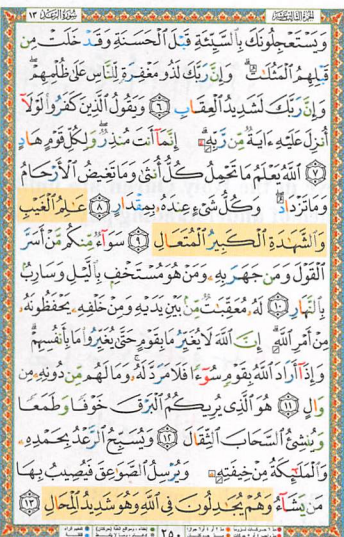 الجزء الثالث عشر سورة الرعد ١٣
وَيَسْتَعْجِلُونَكَ بِٱلسَّيِّئَةِ قَبْلَ ٱلْحَسَنَةِ وَقَدْ خَلَتْ مِن
قَبْلِهِمُ ٱلْمَثُلَٰتُ ۗ وَإِنَّ رَبَّكَ لَذُو مَغْفِرَةٍ لِّلنَّاسِ عَلَىٰ ظُلْمِهِمْ ۖ
وَإِنَّ رَبَّكَ لَشَدِيدُ ٱلْعِقَابِ ٦ وَيَقُولُ ٱلَّذِينَ كَفَرُوا۟ لَوْلَآ
أُنزِلَ عَلَيْهِ ءَايَةٌ مِّن رَّبِّهِۦٓ ۗ إِنَّمَآ أَنتَ مُنذِرٌ ۖ وَلِكُلِّ قَوْمٍ هَادٍ
٧ ٱللَّهُ يَعْلَمُ مَا تَحْمِلُ كُلُّ أُنثَىٰ وَمَا تَغِيضُ ٱلْأَرْحَامُ
وَمَا تَزْدَادُ ۖ وَكُلُّ شَىْءٍ عِندَهُۥ بِمِقْدَارٍ ٨ عَٰلِمُ ٱلْغَيْبِ
وَٱلشَّهَٰدَةِ ٱلْكَبِيرُ ٱلْمُتَعَالِ ٩ سَوَآءٌ مِّنكُم مَّنْ أَسَرَّ
ٱلْقَوْلَ وَمَن جَهَرَ بِهِۦ وَمَنْ هُوَ مُسْتَخْفٍۭ بِٱلَّيْلِ وَسَارِبٌۢ
بِٱلنَّهَارِ ١٠ لَهُۥ مُعَقِّبَٰتٌ مِّنۢ بَيْنِ يَدَيْهِ وَمِنْ خَلْفِهِۦ يَحْفَظُونَهُۥ
مِنْ أَمْرِ ٱللَّهِ ۗ إِنَّ ٱللَّهَ لَا يُغَيِّرُ مَا بِقَوْمٍ حَتَّىٰ يُغَيِّرُوا۟ مَا بِأَنفُسِهِمْ ۗ
وَإِذَآ أَرَادَ ٱللَّهُ بِقَوْمٍ سُوٓءًا فَلَا مَرَدَّ لَهُۥ ۚ وَمَا لَهُم مِّن دُونِهِۦ مِن
وَالٍ ١١ هُوَ ٱلَّذِى يُرِيكُمُ ٱلْبَرْقَ خَوْفًا وَطَمَعًا
وَيُنشِئُ ٱلسَّحَابَ ٱلثِّقَالَ ١٢ وَيُسَبِّحُ ٱلرَّعْدُ بِحَمْدِهِۦ
وَٱلْمَلَٰٓئِكَةُ مِنْ خِيفَتِهِۦ وَيُرْسِلُ ٱلصَّوَٰعِقَ فَيُصِيبُ بِهَا
مَن يَشَآءُ وَهُمْ يُجَٰدِلُونَ فِى ٱللَّهِ وَهُوَ شَدِيدُ ٱلْمِحَالِ ١٣
٢٥٠